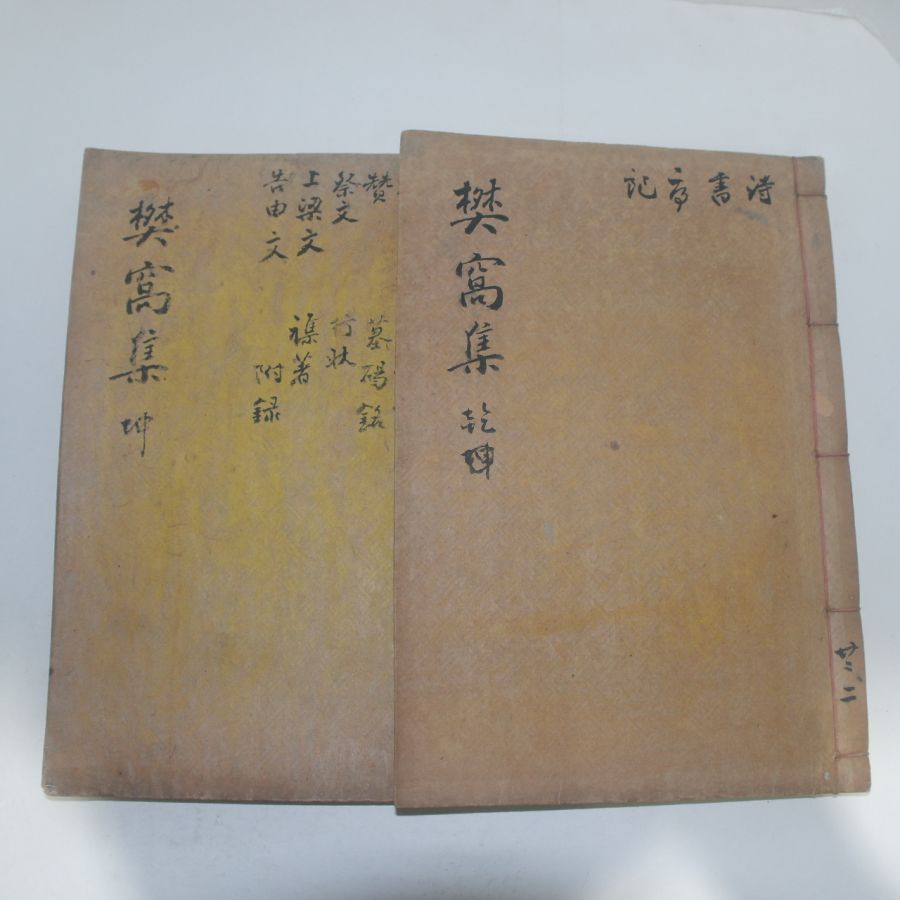 詩
書
序
記
樊窩集 乾坤
卄二、二
贊
祭文
上梁文
告由文
墓碣銘
行狀
襍著
附錄
樊窩集 坤